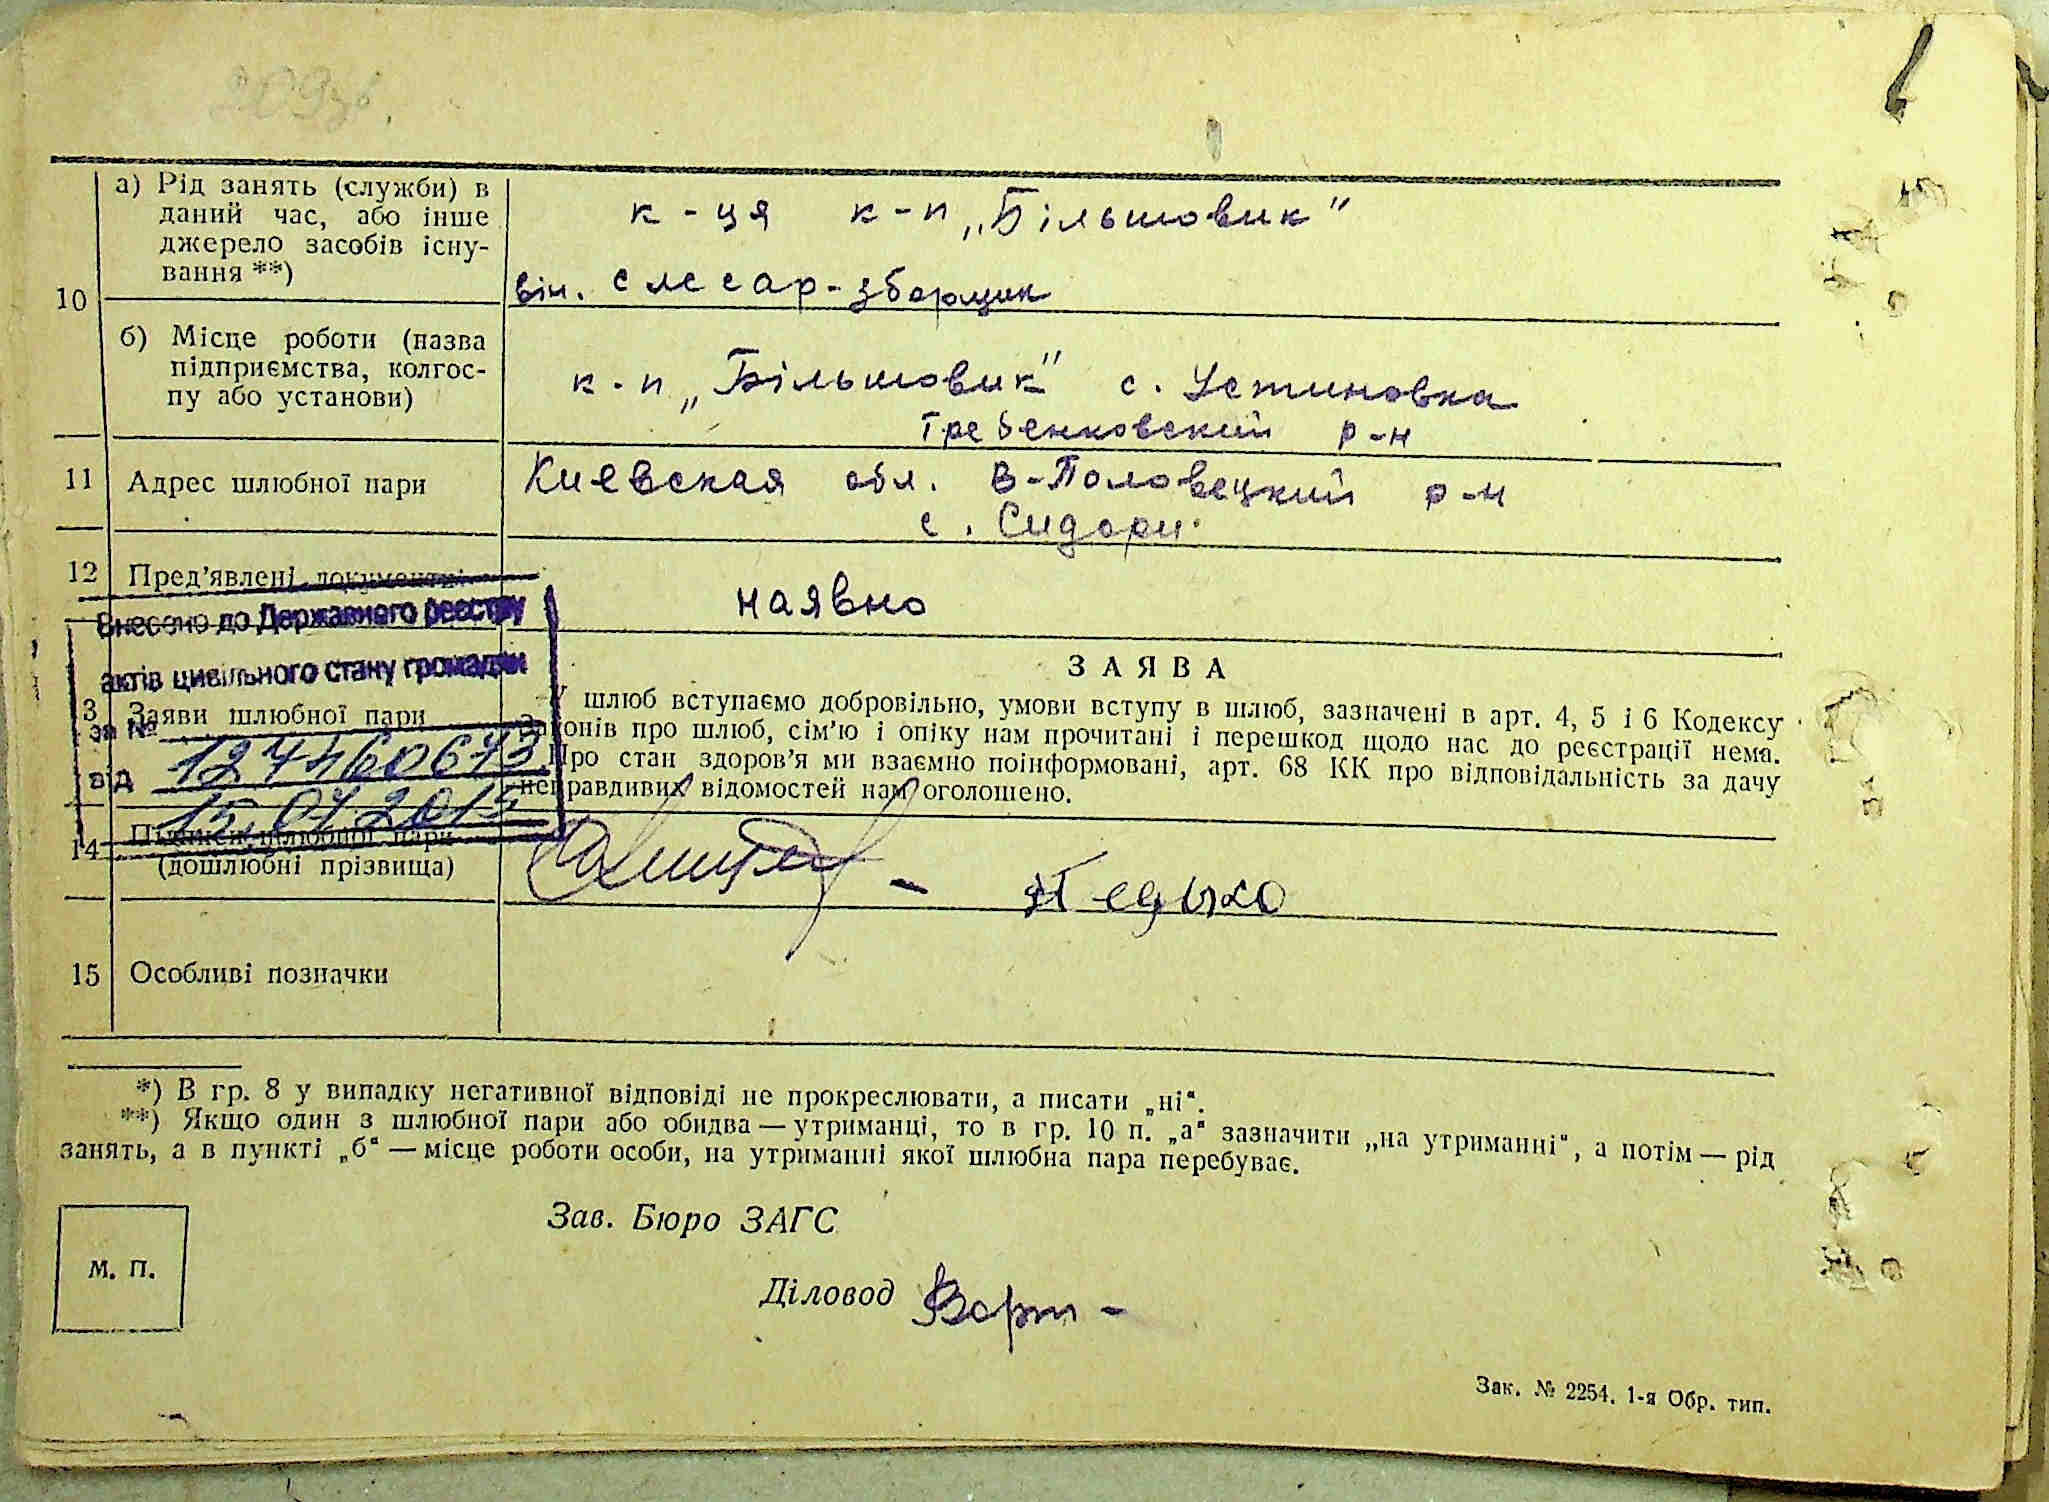 209зв.
а) Рід занять (служби) в
даний час, або інше
джерело засобів існу-
вання **)
к-ця к-п „Більшовик"
він. слесар-зборщик
10
б) Місце роботи (назва
підприємства, колгос-
пу або установи)
к-п „Більшовик" с. Устиновка
Гребенковский р-н
11 Адрес шлюбної пари
Киевская обл. В-Половецкий р-н
с. Сидори.
12 Пред'явлені документи
наявно
Внесено до Державного реєстру
актів цивільного стану громадян
за №
127460673
від 15.07.2015
3 Заяви шлюбної пари
ЗАЯВА
У шлюб вступаємо добровільно, умови вступу в шлюб, зазначені в арт. 4, 5 і 6 Кодексу
Законів про шлюб, сім'ю і опіку нам прочитані і перешкод щодо нас до реєстрації нема.
Про стан здоров'я ми взаємно поінформовані, арт. 68 КК про відповідальність за дачу
неправдивих відомостей нам оголошено.
14 Підписи шлюбної пари
(дошлюбні прізвища)
15 Особливі позначки
*) В гр. 8 у випадку негативної відповіді не прокреслювати, а писати „ні“.
**) Якщо один з шлюбної пари або обидва — утриманці, то в гр. 10 п. „а“ зазначити „на утриманні“, а потім — рід
занять, а в пункті „б“ — місце роботи особи, на утриманні якої шлюбна пара перебуває.
Зав. Бюро ЗАГС
М. П.
Діловод
Зак. № 2254. 1-я Обр. тип.